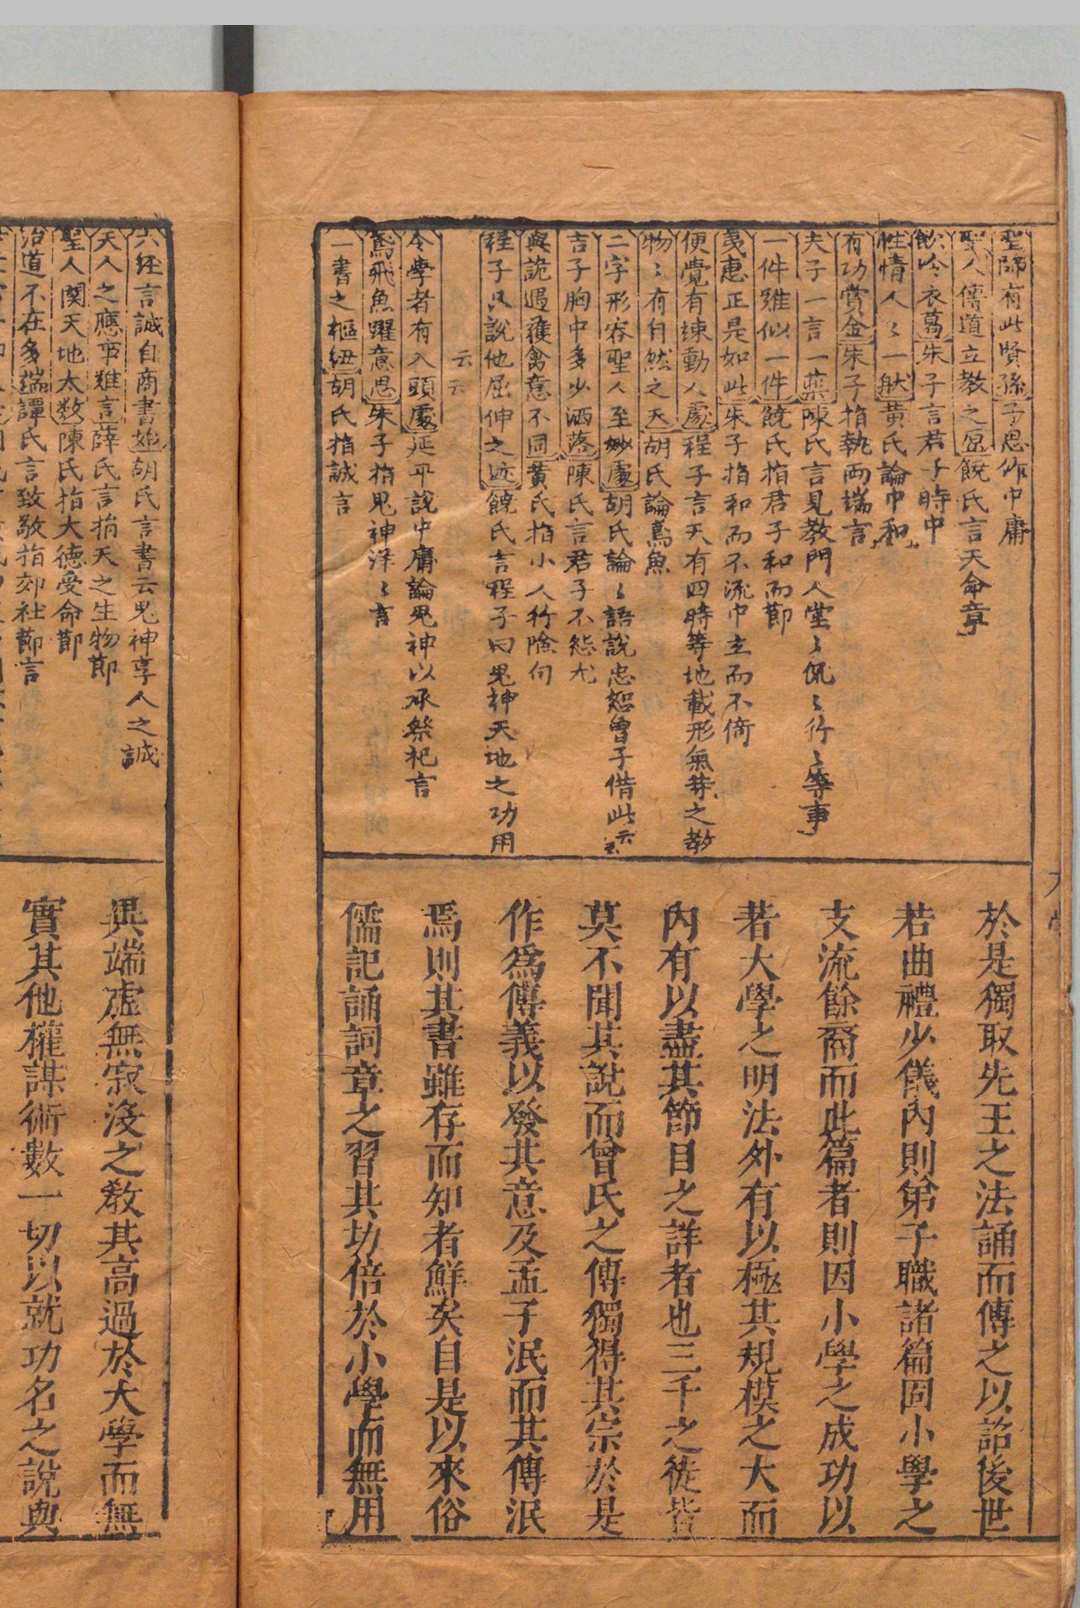 聖師有此賢孫子思作中庸
聖人傳道立教之原饒氏言天命章
飲冷衣葛朱子言君子時中
性情人〻一般黃氏論中和
有功賞金朱子指執兩端言
夫子一言一藥陳氏言見教門人堂〻侃〻行〻等事
一件雖似一件饒氏指君子和而節
夷惠正是如此朱子指和而不流中立而不倚
便覺有悚動人處程子言天有四時等地載形氣等之教
物〻有自然之天胡氏論鳶魚
二字形容聖人至妙處胡氏論〻語說忠恕曾子借此云〻
言子胸中多少洒落陳氏言君子不怨尤
與詭遇獲禽意不同黃氏指小人行險句
程子只說他屈伸之迹饒氏言程子曰鬼神天地之功用
云云
今學者有入頭處延平說中庸論鬼神以承祭祀言
鳶飛魚躍意思朱子指鬼神洋〻言
一書之樞紐胡氏指誠言
於是獨取先王之法誦而傳之以詔後世
若曲禮少儀內則弟子職諸篇固小學之
支流餘裔而此篇者則因小學之成功以
若大學之明法外有以極其規模之大而
內有以盡其節目之詳者也三千之徒皆
莫不聞其說而曾氏之傳獨得其宗於是
作爲傳義以發其意及孟子泯而其傳泯
焉則其書雖存而知者鮮矣自是以來俗
儒記誦詞章之習其功倍於小學而無用
六經言誠自商書始胡氏言書云鬼神享人之誠
天人之應事難言薛氏言指天之生物節
聖人関天地太数陳氏指大德受命節
治道不在多端譚氏言致敬指郊社節言
異端虛無寂滅之教其高過於大學而無
實其他權謀術數一切以就功名之說與